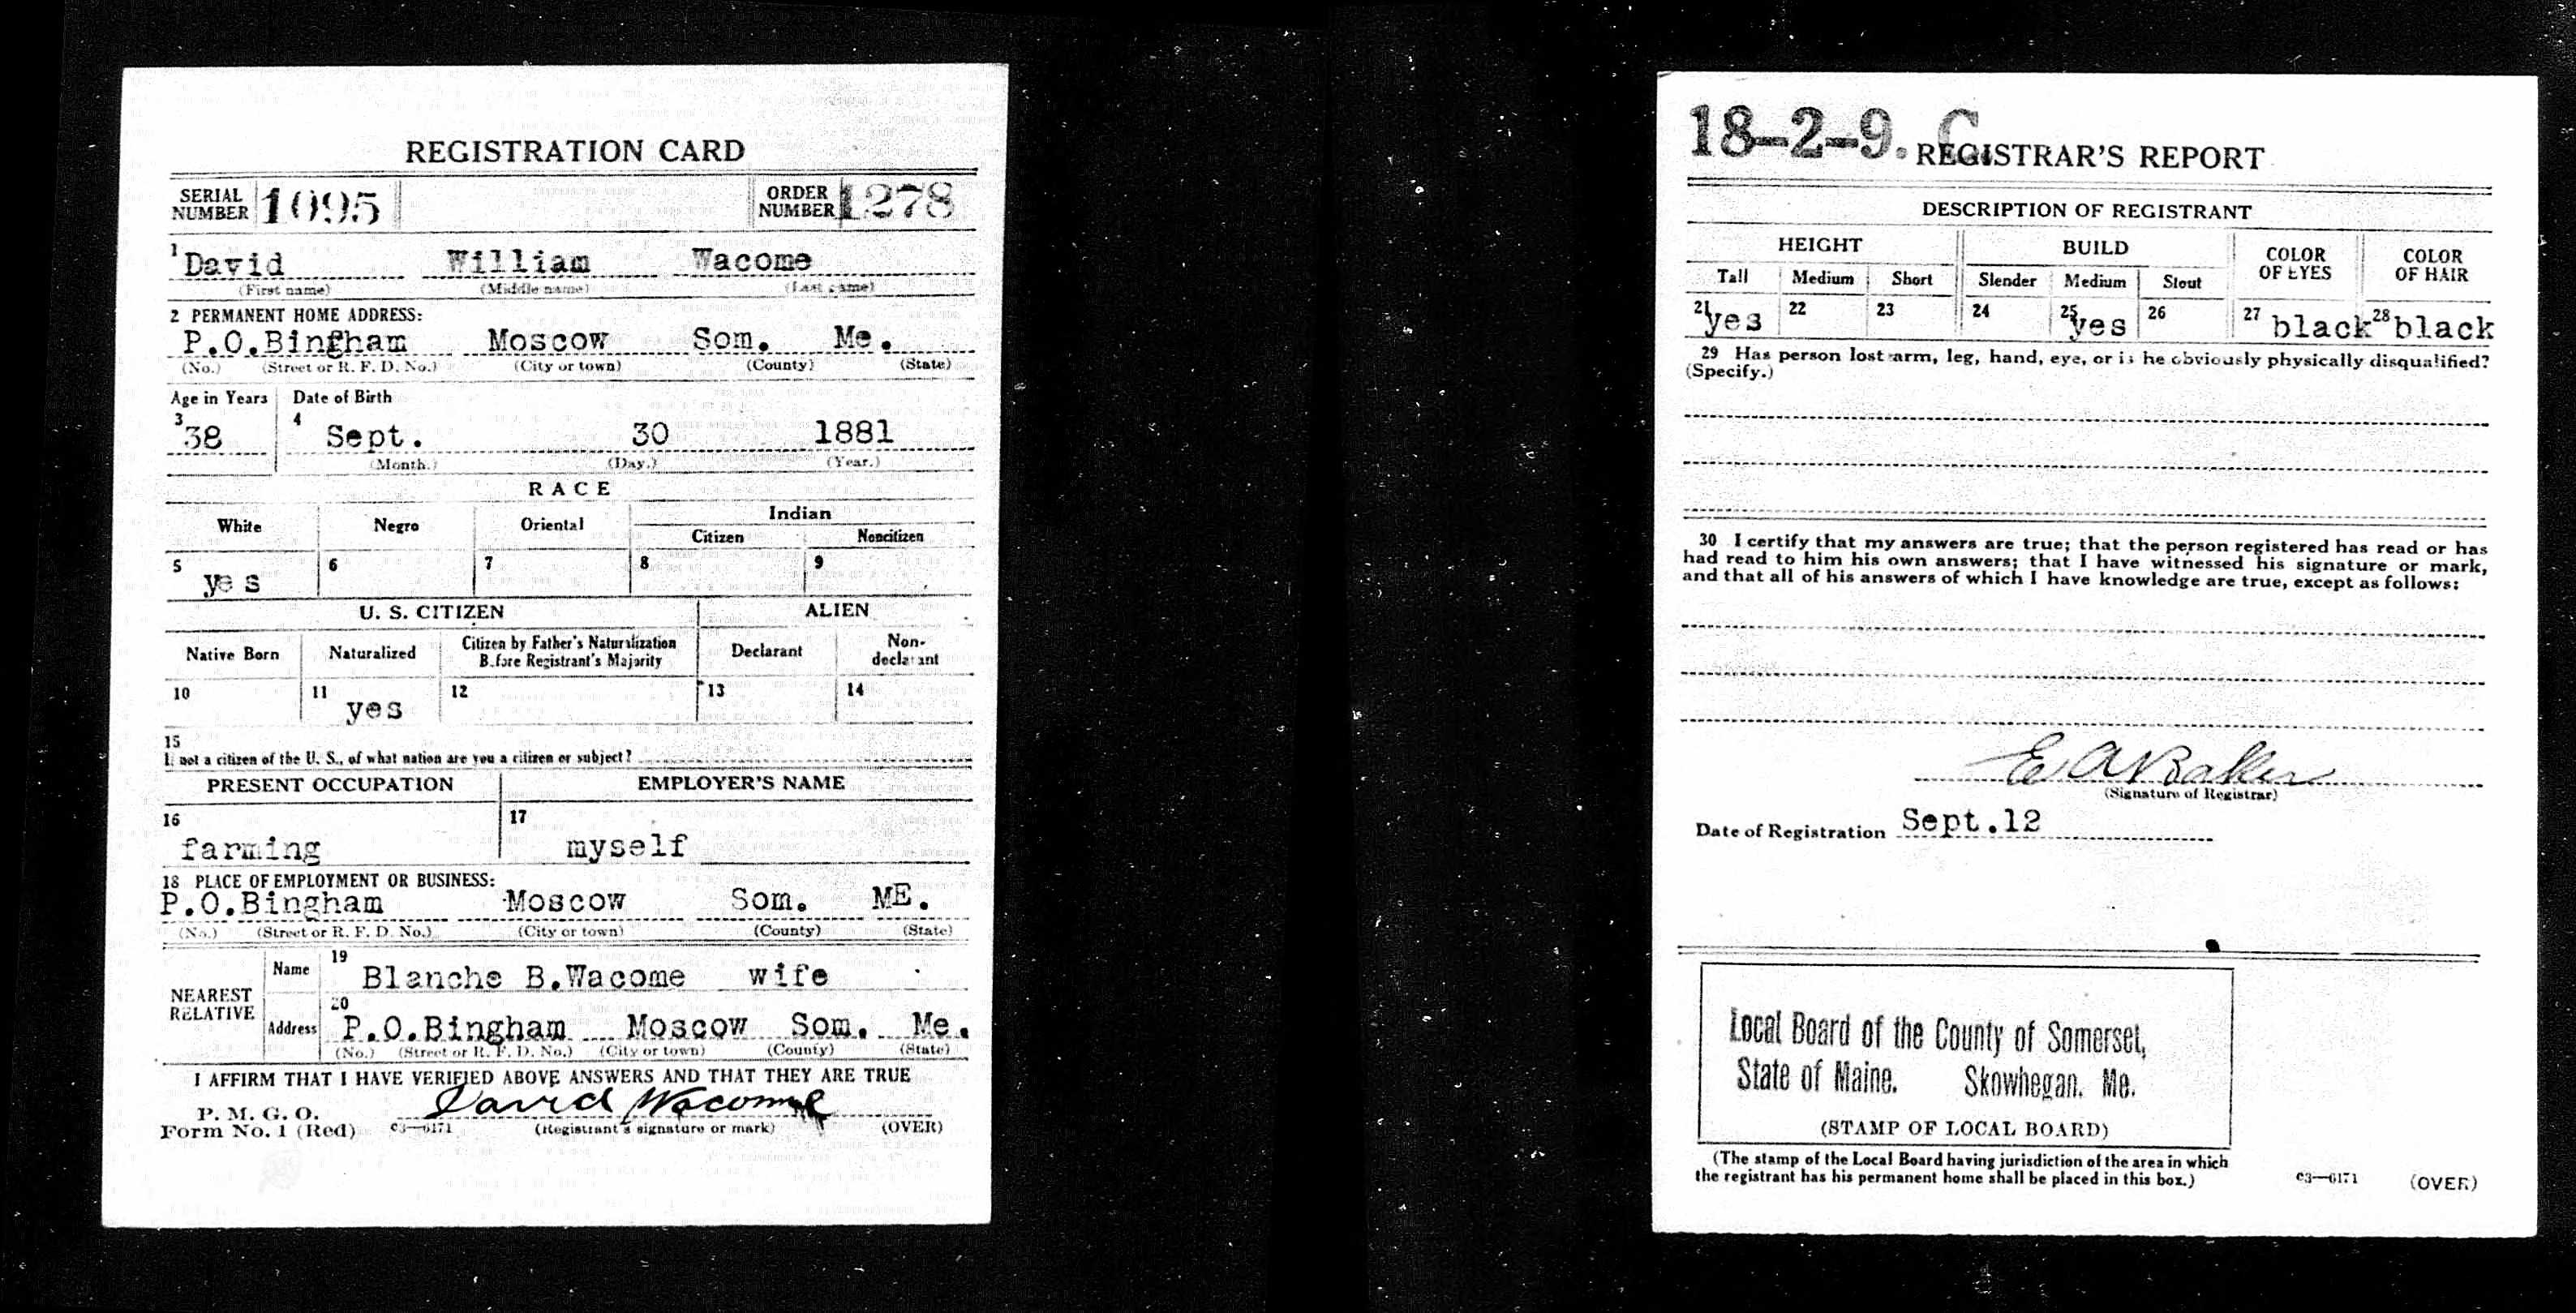 REGISTRATION CARD
SERIAL NUMBER 1095 ORDER NUMBER 1278
1 David William Wacome
(First name) (Middle name) (Last name)
2 PERMANENT HOME ADDRESS:
P.O.Bingham Moscow Som. Me.
(No.) (Street or R. F. D. No.) (City or town) (County) (State)
Age in Years Date of Birth
3 38 4 Sept. 30 1881
(Month.) (Day.) (Year.)
RACE
White Negro Oriental Indian
Citizen Noncitizen
5 yes 6 7 8 9
U. S. CITIZEN ALIEN
Native Born Naturalized Citizen by Father's Naturalization Before Registrant's Majority Declarant Non-declarant
10 11 yes 12 13 14
15
If not a citizen of the U. S., of what nation are you a citizen or subject?
PRESENT OCCUPATION EMPLOYER'S NAME
16 farming 17 myself
18 PLACE OF EMPLOYMENT OR BUSINESS:
P.O.Bingham Moscow Som. ME.
(No.) (Street or R. F. D. No.) (City or town) (County) (State)
NEAREST RELATIVE
Name 19 Blanche B.Wacome wife
Address 20 P.O.Bingham Moscow Som. Me.
(No.) (Street or R. F. D. No.) (City or town) (County) (State)
I AFFIRM THAT I HAVE VERIFIED ABOVE ANSWERS AND THAT THEY ARE TRUE
P. M. G. O.
Form No. 1 (Red) c3—6171 David Wacome
(Registrant's signature or mark) (OVER)
18-2-9. C.
REGISTRAR'S REPORT
DESCRIPTION OF REGISTRANT
HEIGHT BUILD COLOR OF EYES COLOR OF HAIR
Tall Medium Short Slender Medium Stout
21 yes 22 23 24 25 yes 26 27 black 28 black
29 Has person lost arm, leg, hand, eye, or is he obviously physically disqualified?
(Specify.)
30 I certify that my answers are true; that the person registered has read or has
had read to him his own answers; that I have witnessed his signature or mark,
and that all of his answers of which I have knowledge are true, except as follows:
E A Baker
(Signature of Registrar)
Date of Registration Sept.12
Local Board of the County of Somerset,
State of Maine. Skowhegan, Me.
(STAMP OF LOCAL BOARD)
(The stamp of the Local Board having jurisdiction of the area in which
the registrant has his permanent home shall be placed in this box.)
c3—6171 (OVER)